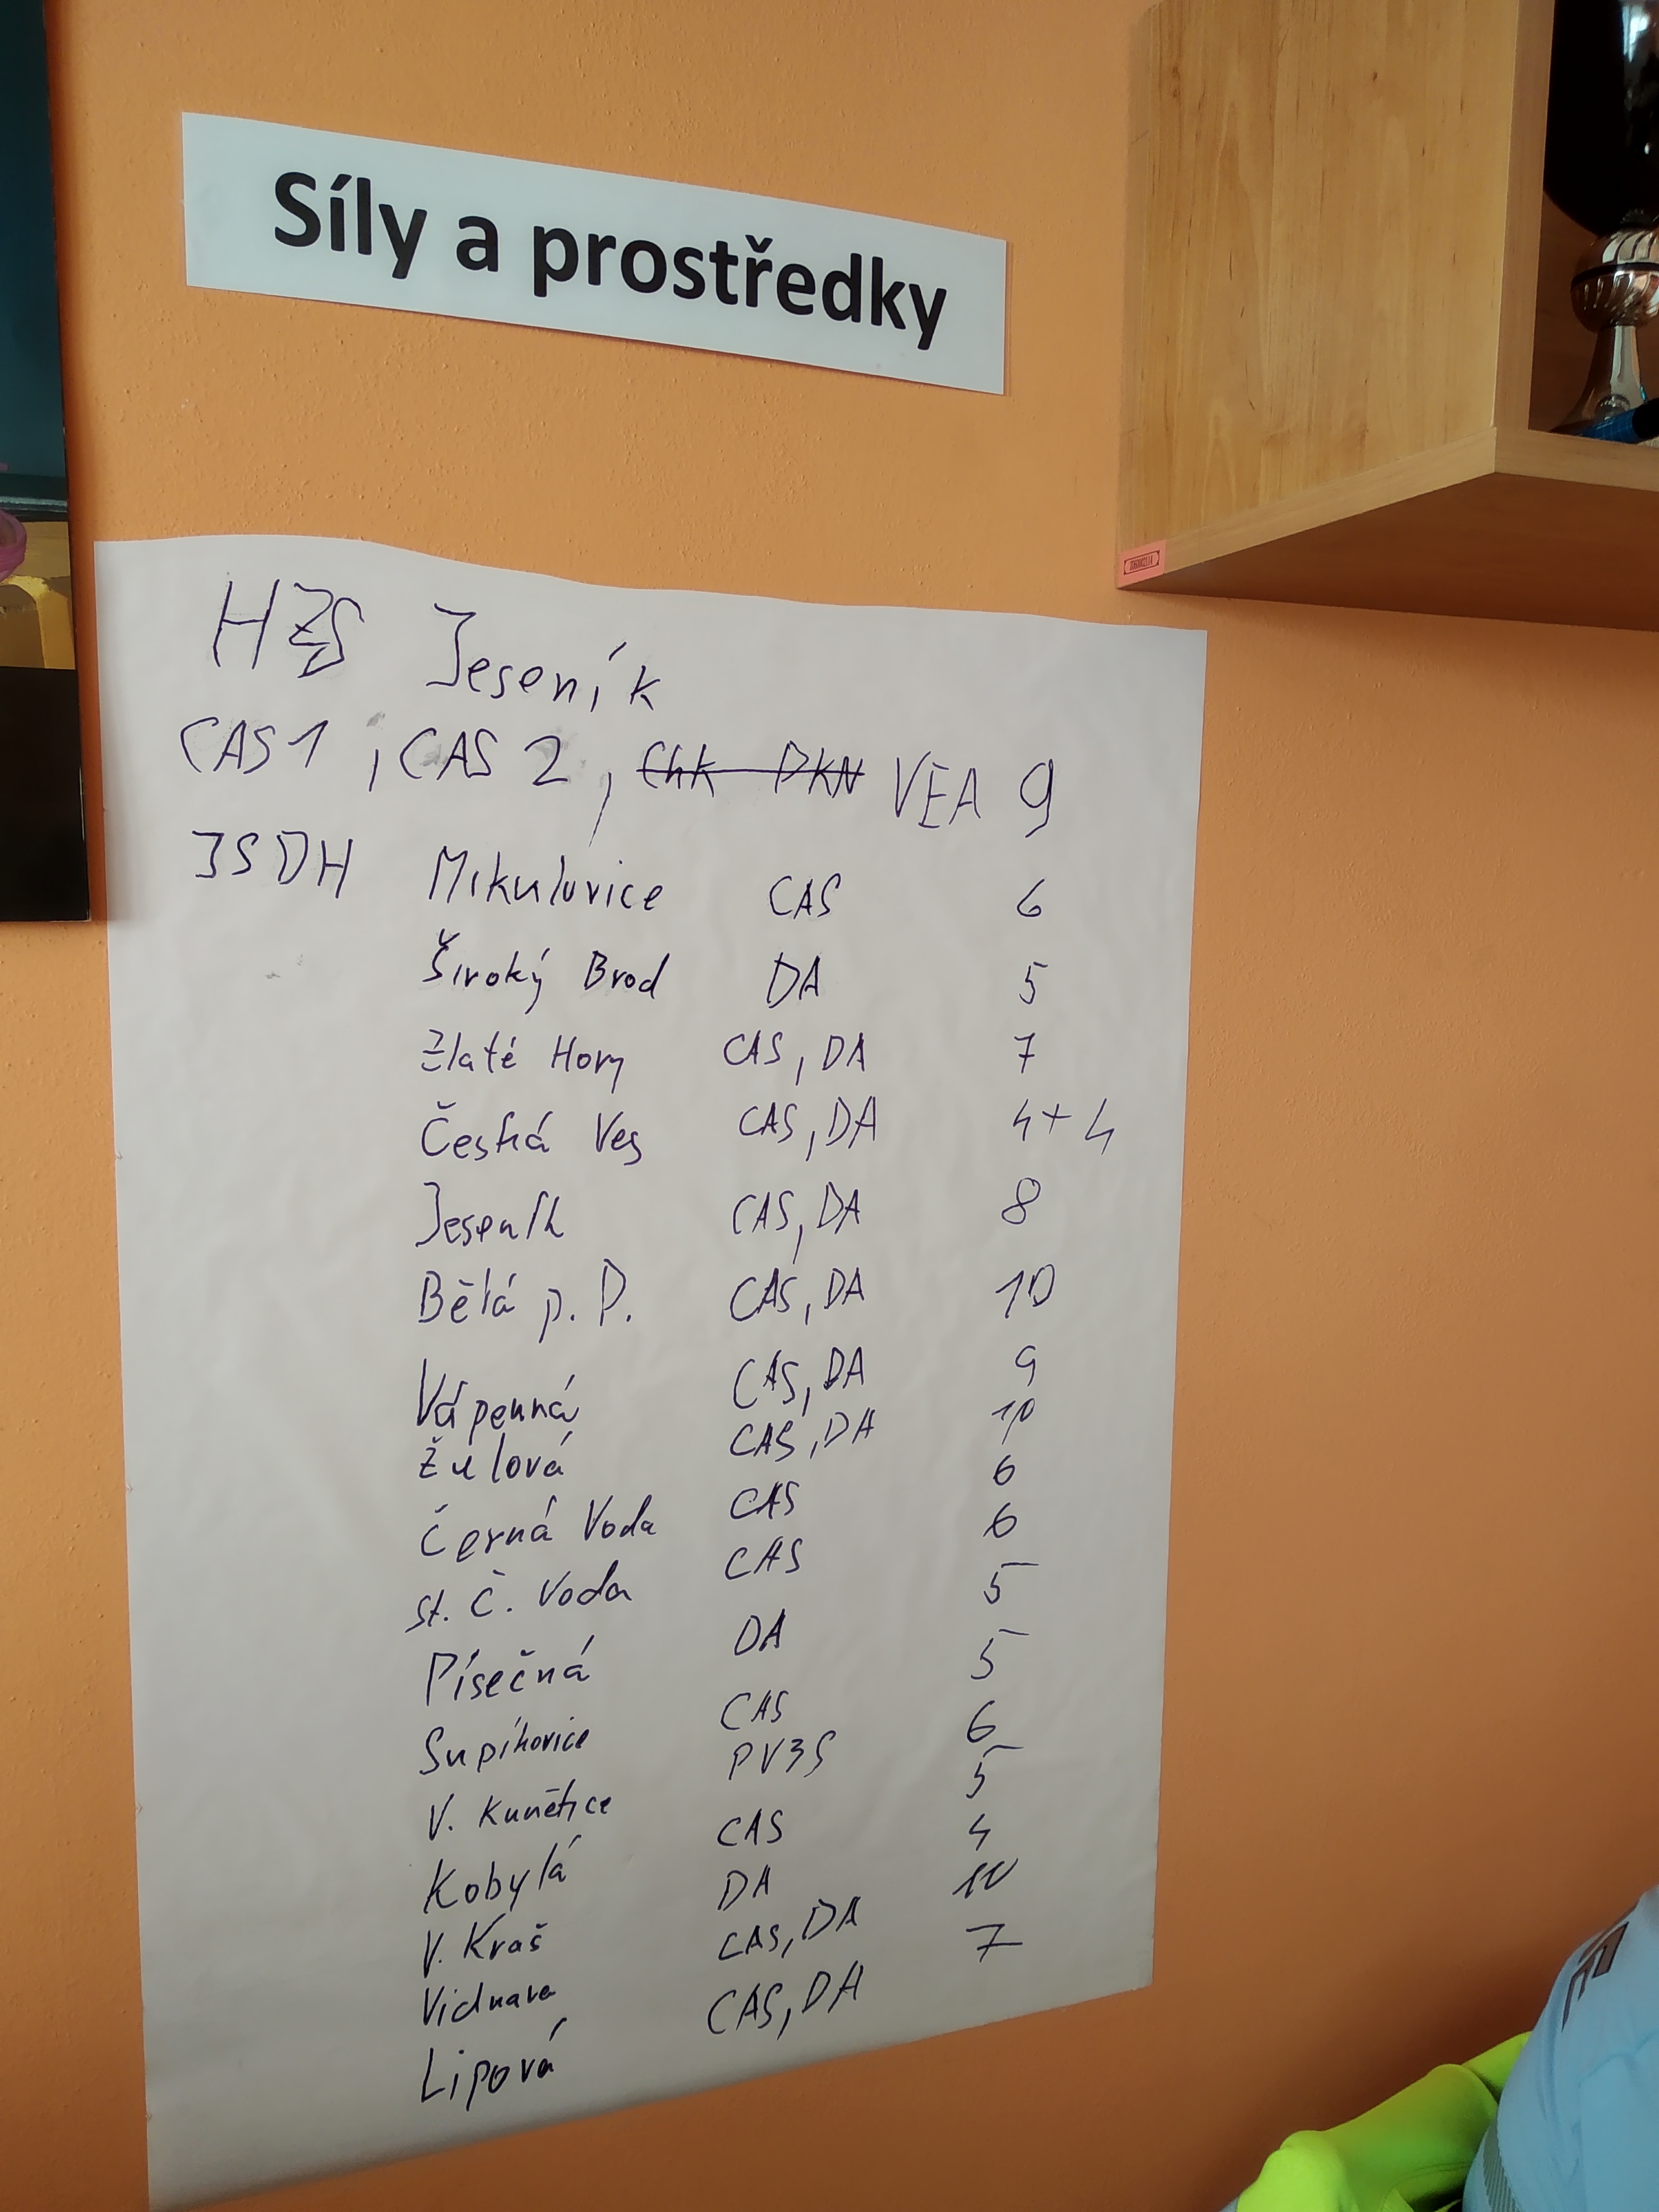 Síly a prostředky
HZS Jeseník
CAS 1, CAS 2, Chk DKN VEA 9
JSDH Mikulovice CAS 6
Široký Brod DA 5
Zlaté Hory CAS, DA 7
Česká Ves CAS, DA 4+4
Jeseník CAS, DA 8
Bělá p. P. CAS, DA 10
Vápenná CAS, DA 9
Žulová CAS, DA 10
Černá Voda CAS 6
st. Č. Voda CAS 6
Písečná DA 5
Supíkovice CAS 5
V. Kunětice PV3S 6
Kobylá CAS 5
V. Kraš DA 4
Vidnava CAS, DA 10
Lipová CAS, DA 7